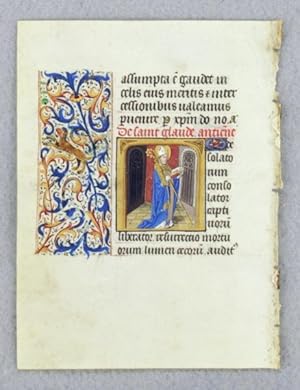 assumpta ē gaudet in
celis eius meritis ⁊ inter
cessionibus ualeamus
peruenire p xpm do no a
De saint glaude. antiene
O de
solato
rum
conso
lator
capti
uorū
liberator. resurrectio mortu
orum lumen cecorū. audit